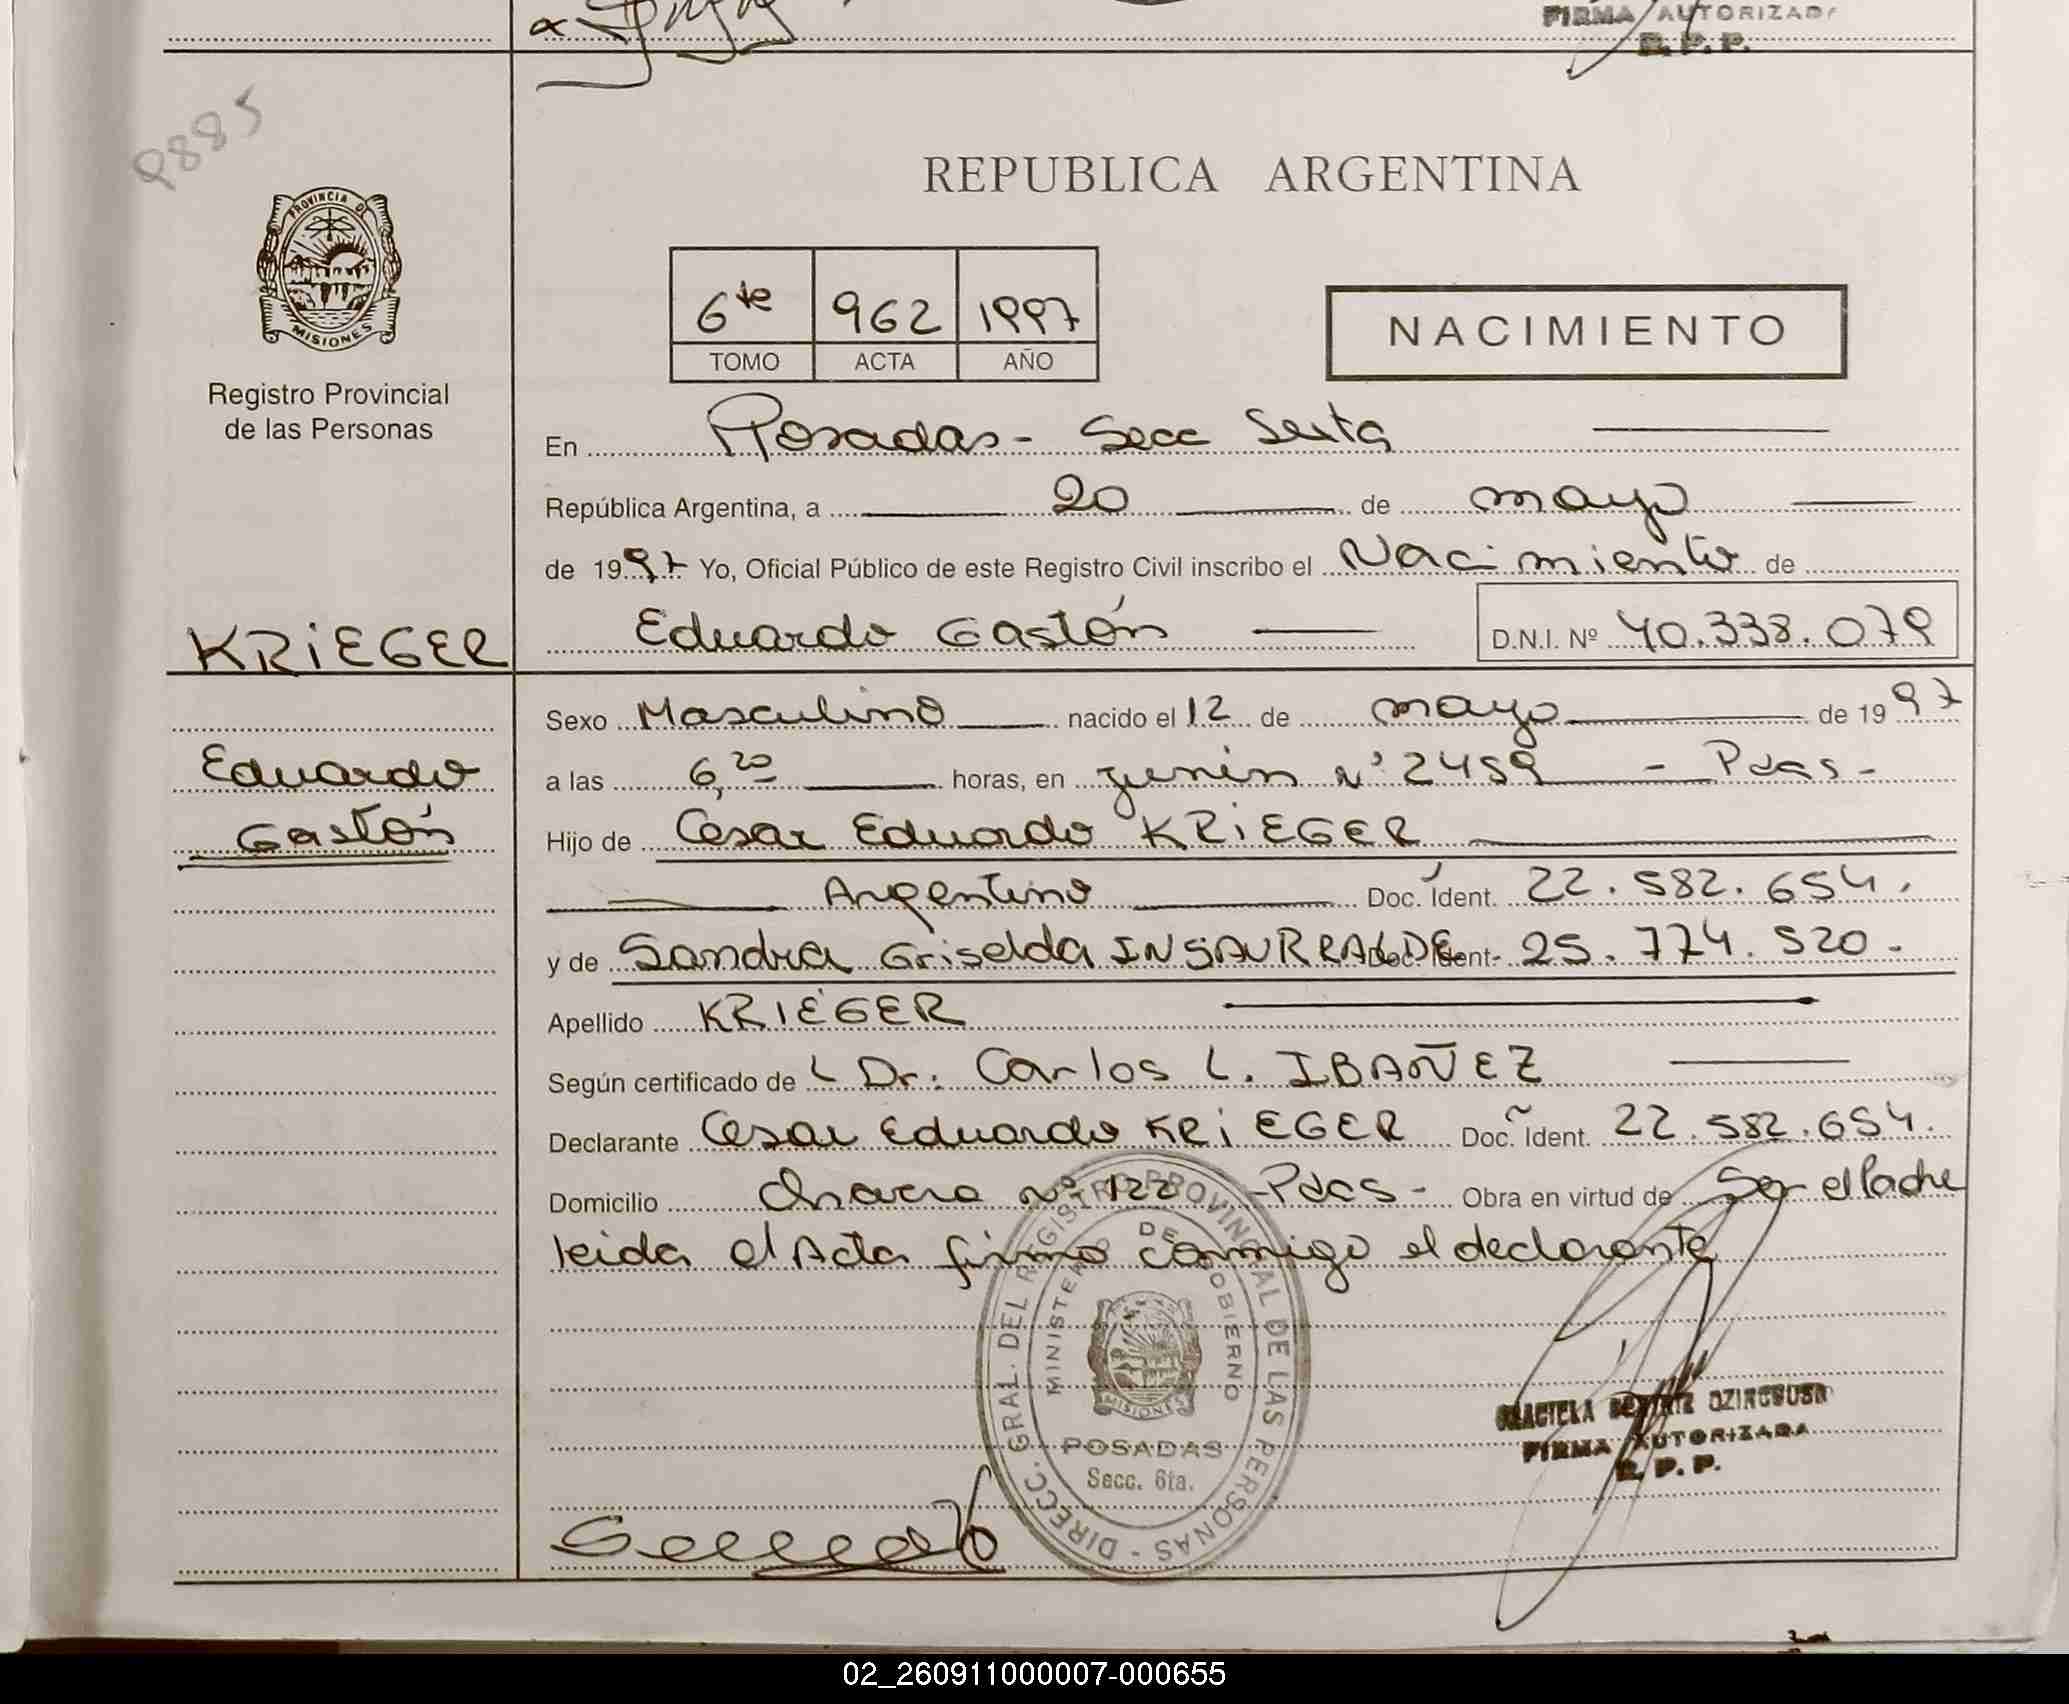 FIRMA AUTORIZADA
R. P. P.
9885
PROVINCIA DE
MISIONES
Registro Provincial
de las Personas
REPUBLICA ARGENTINA
6te 962 1997
TOMO ACTA AÑO
NACIMIENTO
En Posadas - Secc Sexta
República Argentina, a 20 de mayo
de 1997 Yo, Oficial Público de este Registro Civil inscribo el Nacimiento de
KRIEGER
Eduardo Gastón D.N.I. Nº 40.338.079
Sexo Masculino nacido el 12 de mayo de 1997
Eduardo
Gastón
a las 6,20 horas, en Junín Nº 2459 - Pdas -
Hijo de César Eduardo KRIEGER
Argentino Doc. Ident. 22.582.654.
y de Sandra Griselda INSAURRALDE Doc. Ident. 25.774.520 -
Apellido KRIEGER
Según certificado de Dr. Carlos L. IBAÑEZ
Declarante Cesar Eduardo KRIEGER Doc. Ident. 22.582.654.
Domicilio Chacra Nº 122 - Pdas - Obra en virtud de Ser el Padre
leida el Acta firma conmigo el declarante
DIRECC. GRAL. DEL REGISTRO PROVINCIAL DE LAS PERSONAS -
MINISTERIO DE GOBIERNO
MISIONES
POSADAS
Secc. 6ta.
GRACIELA BEATRIZ
FIRMA AUTORIZADA
R. P. P.
02_260911000007-000655